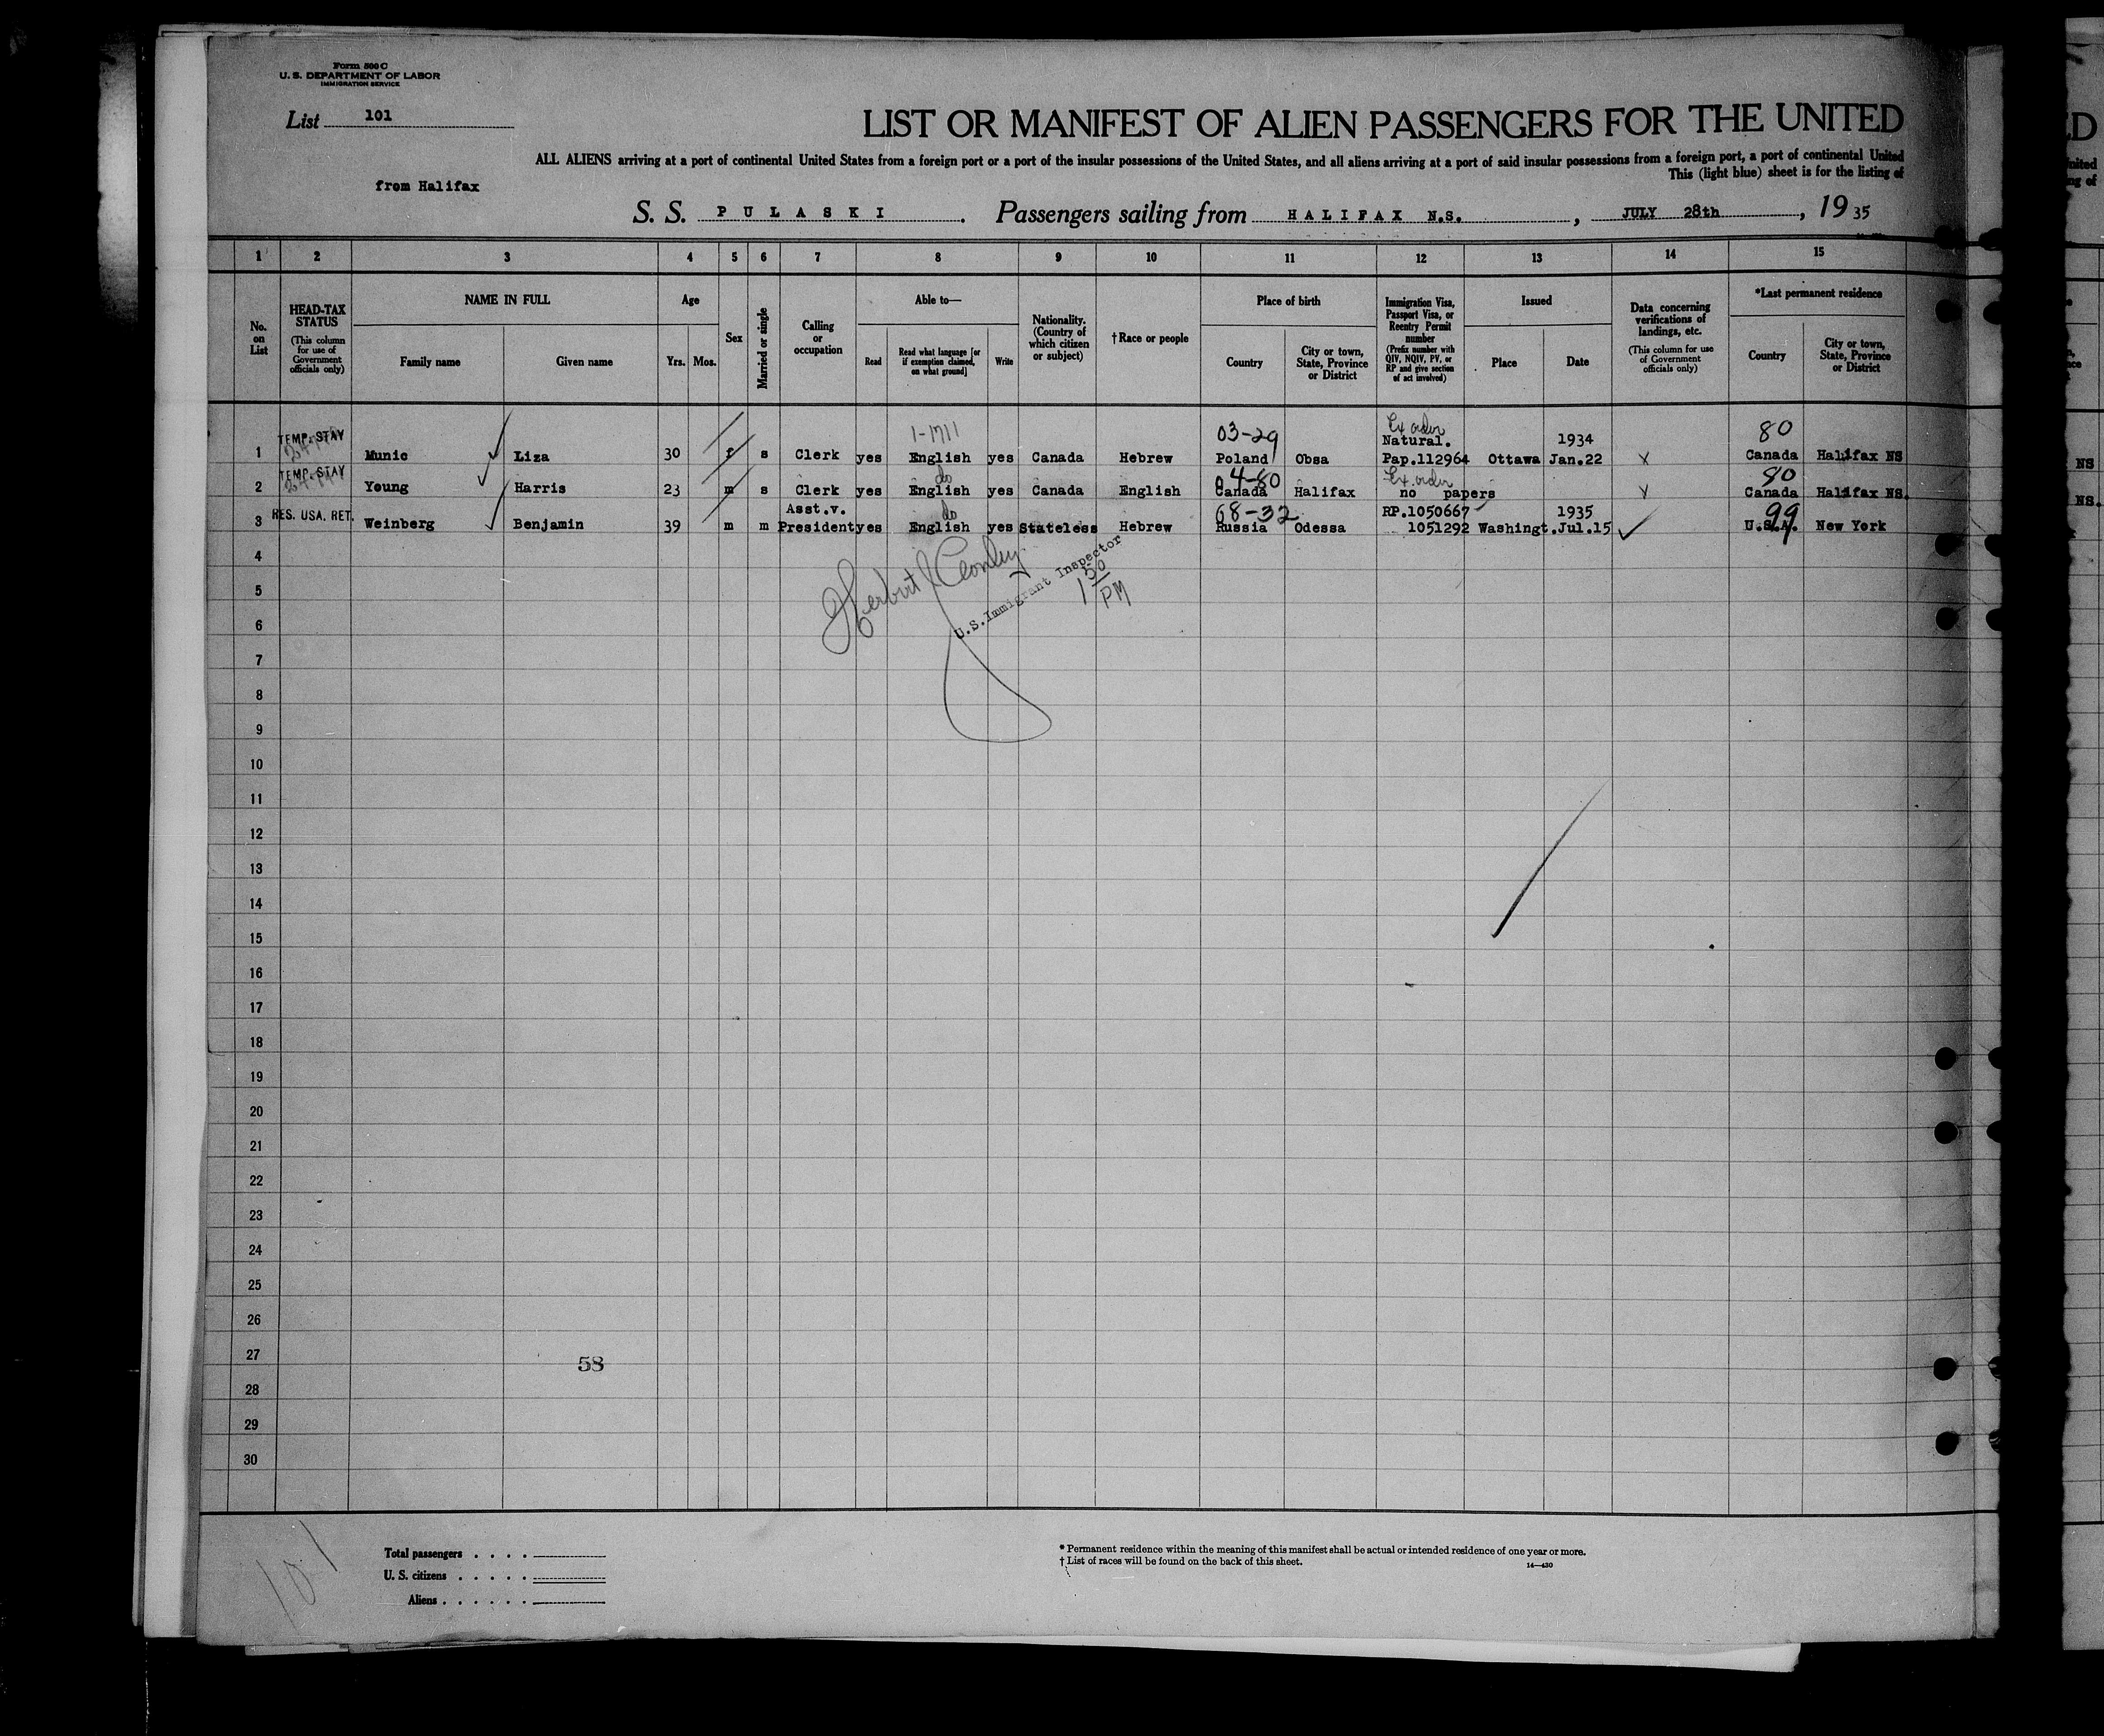 Form 500 C
U. S. DEPARTMENT OF LABOR
IMMIGRATION SERVICE
List 101
LIST OR MANIFEST OF ALIEN PASSENGERS FOR THE UNITED
ALL ALIENS arriving at a port of continental United States from a foreign port or a port of the insular possessions of the United States, and all aliens arriving at a port of said insular possessions from a foreign port, a port of continental United
This (light blue) sheet is for the listing of
from Halifax
S. S. PULASKI. Passengers sailing from HALIFAX N.S., JULY 28th, 1935
1 2 3 4 5 6 7 8 9 10 11 12 13 14 15
No. on List
HEAD-TAX STATUS
(This column for use of Government officials only)
NAME IN FULL
Family name
Given name
Age
Yrs. Mos.
Sex
Married or single
Calling or occupation
Able to—
Read
Read what language [or if exemption claimed, on what ground]
Write
Nationality. (Country of which citizen or subject)
†Race or people
Place of birth
Country
City or town, State, Province or District
Immigration Visa, Passport Visa, or Reentry Permit number
(Prefix number with QIV, NQIV, PV, or RP and give section of act involved)
Issued
Place
Date
Data concerning verifications of landings, etc.
(This column for use of Government officials only)
*Last permanent residence
Country
City or town, State, Province or District
1-1711 03-29 Ex order 80
TEMP. STAY Natural. 1934
1 Munic Liza 30 f s Clerk yes English yes Canada Hebrew Poland Obsa Pap.112964 Ottawa Jan.22 X Canada Halifax NS
TEMP. STAY do 04-80 Ex order 80
2 Young Harris 23 m s Clerk yes English yes Canada English Canada Halifax no papers Canada Halifax NS.
RES. USA. RET. Asst.v. do 68-32 RP.1050667 1935 99
3 Weinberg Benjamin 39 m m President yes English yes Stateless Hebrew Russia Odessa 1051292 Washingt.Jul.15 U.S.A. New York
4
Herbert
U.S. Immigrant Inspector
1 30 PM
5
6
7
8
9
10
11
12
13
14
15
16
17
18
19
20
21
22
23
24
25
26
27
58
28
29
30
101
Total passengers . . . .
U. S. citizens . . . . .
Aliens . . . . . .
* Permanent residence within the meaning of this manifest shall be actual or intended residence of one year or more.
† List of races will be found on the back of this sheet.
14—430